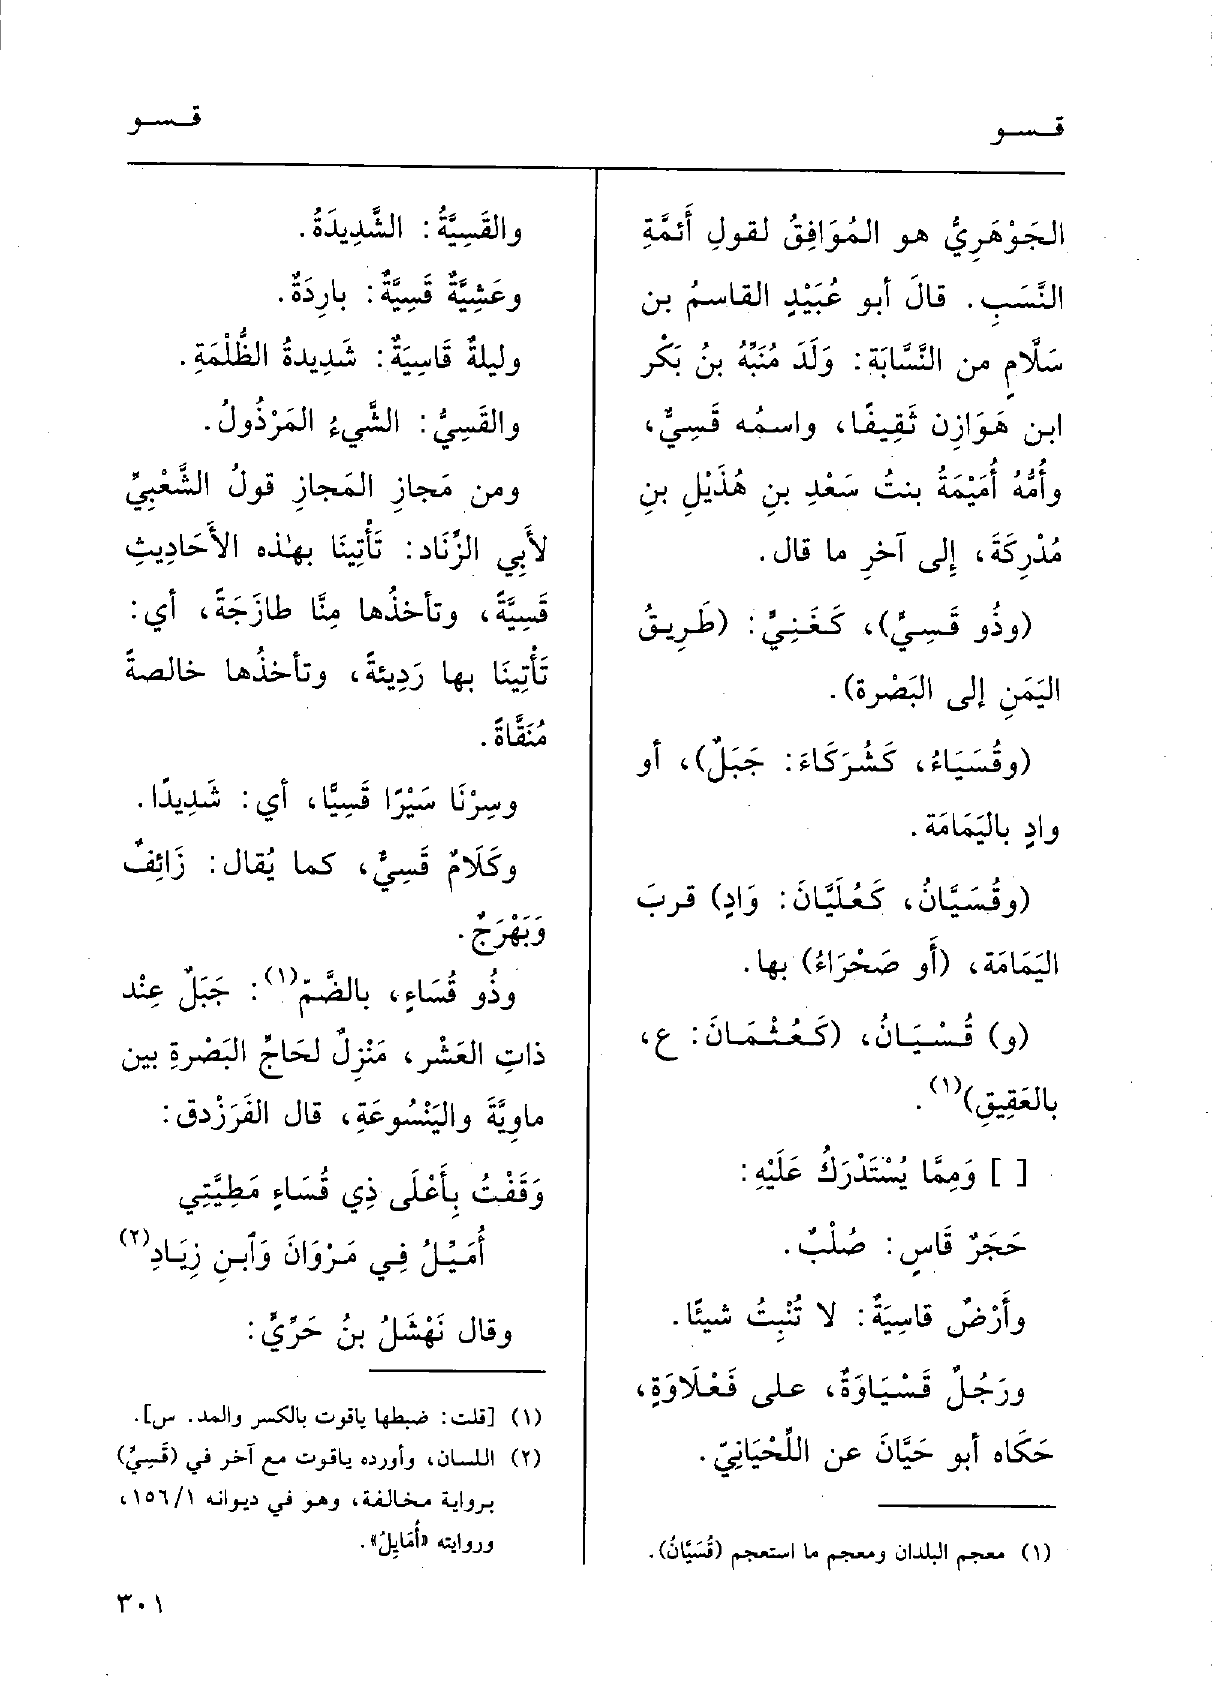 قسو
قسو
الجَوْهَرِيُّ هو المُوَافِقُ لقولِ أَئمَّةِ
النَّسَبِ. قالَ أبو عُبَيْدٍ القاسمُ بن
سَلَّامٍ من النَّسَّابَة: وَلَدَ مُنَبِّهُ بنُ بَكْر
ابن هَوَازِن ثَقِيفًا، واسمُه قَسِيٌّ،
وأُمُّهُ أُمَيْمَةُ بنتُ سَعْدِ بنِ هُذَيْلِ بنِ
مُدْرِكَةَ، إِلى آخرِ ما قال.
(وذُو قَسِيٍّ)، كَغَنِيٍّ: (طَرِيقُ
اليَمَنِ إلى البَصْرة).
(وقُسَيَاءُ، كَشُرَكَاءَ: جَبَلٌ)، أو
وادٍ باليَمَامَة.
(وقُسَيَّانُ، كَعُلَيَّانَ: وَادٍ) قربَ
اليَمَامَة، (أو صَحْرَاءُ) بها.
(و) قُسْيَانُ، (كَعُثْمَانَ: ع،
بالعَقِيقِ)(١).
[ ] وَمِمَّا يُسْتَدْرَكُ عَلَيْهِ:
حَجَرٌ قَاسٍ: صُلْبٌ.
وأَرْضٌ قاسِيَةٌ: لا تُنْبِتُ شيئًا.
ورَجُلٌ قَسْيَاوَةٌ، على فَعْلَاوَةٍ،
حَكَاه أبو حَيَّانَ عن اللِّحْيَانِيّ.
(١) معجم البلدان ومعجم ما استعجم (قُسَيَّانُ).
والقَسِيَّةُ: الشَّدِيدَةُ.
وعَشِيَّةٌ قَسِيَّةٌ: بارِدَةٌ.
وليلةٌ قَاسِيَةٌ: شَدِيدةُ الظُّلْمَةِ.
والقَسِيُّ: الشَّيءُ المَرْذُولُ.
ومن مَجازِ المَجازِ قولُ الشَّعْبِيِّ
لأَبِي الزِّنَاد: تَأْتِينَا بهٰذه الأحَادِيثِ
قَسِيَّةً، وتأخذُها مِنَّا طازَجَةً، أي:
تَأْتِينَا بها رَدِيئةً، وتأخذُها خالصةً
مُنَقَّاةً.
وسِرْنَا سَيْرًا قَسِيًّا، أي: شَدِيدًا.
وكَلَامٌ قَسِيٌّ، كما يُقال: زَائِفٌ
وَبَهْرَجٌ.
وذُو قُسَاءٍ، بالضَّمّ(١): جَبَلٌ عِنْد
ذاتِ العَشْر، مَنْزِلٌ لحَاجِّ البَصْرةِ بين
ماوِيَّةَ والیَنْسُوعَةِ، قال الفَرَزْدق:
وَقَفْتُ بِأَعْلَى ذِي قُسَاءٍ مَطِيَّتِي
أُمَيِّلُ فِي مَرْوَانَ وَٱبنِ زِيَادِ(٢)
وقال نَهْشَلُ بنُ حَرِّيٍّ:
(١) [قلت: ضبطها ياقوت بالكسر والمد. س].
(٢) اللسان، وأورده ياقوت مع آخر في (قَسِيٌّ)
برواية مخالفة، وهو في ديوانه ١٥٦/١،
وروايته «أُمَايِلُ».
٣٠١